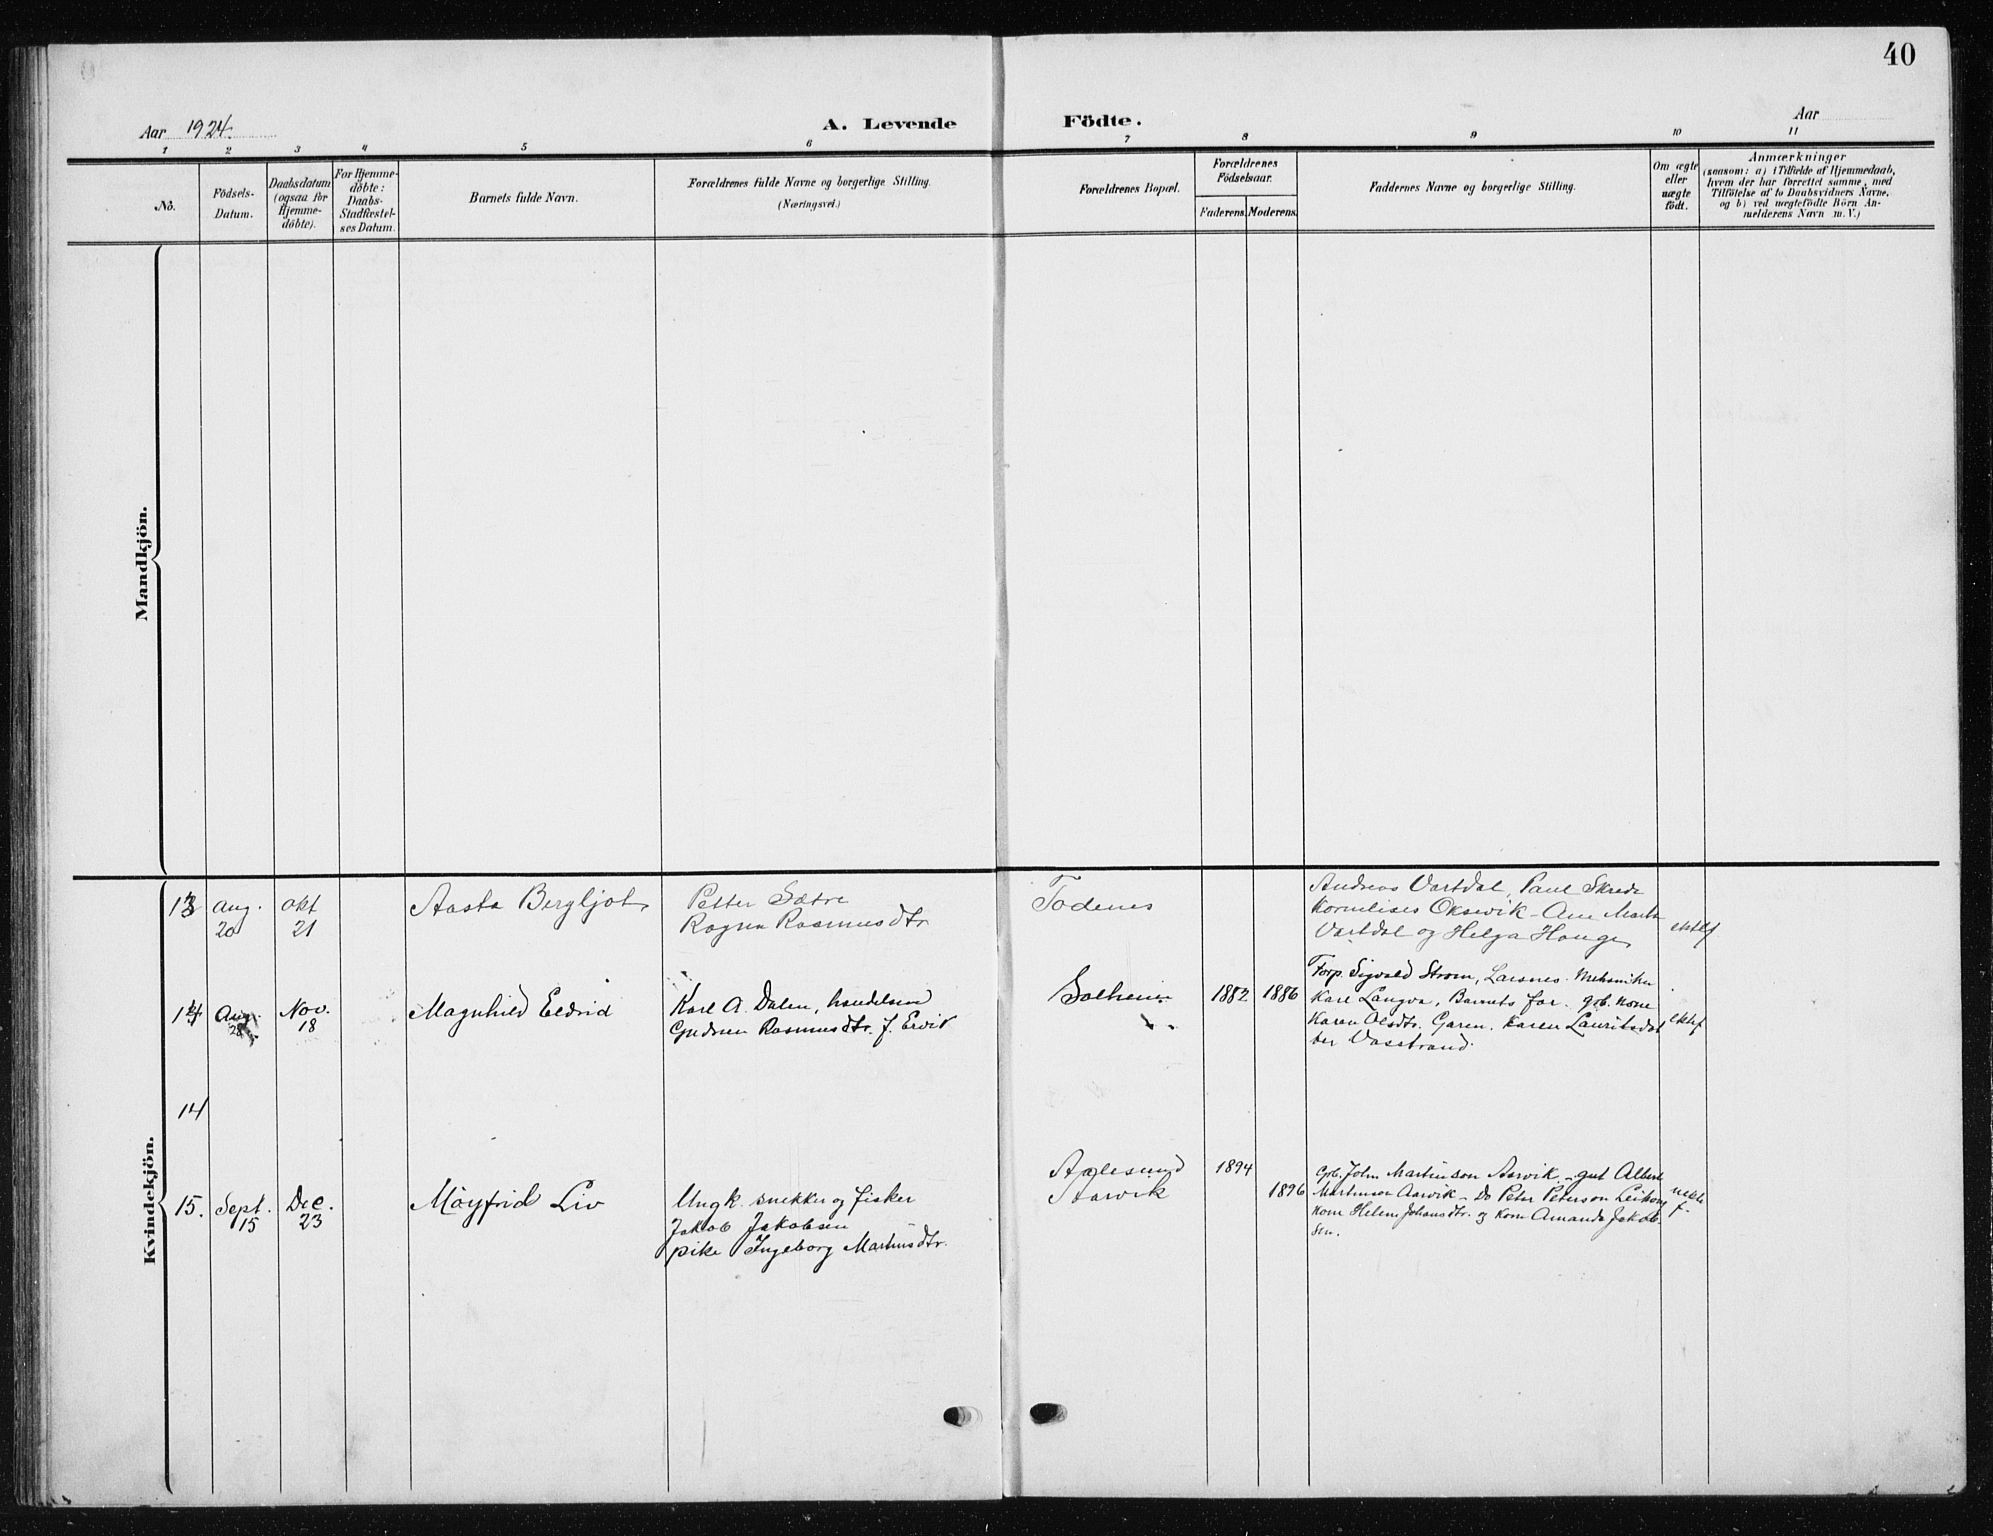 40
Aar 1924.
A. Levende Födte.
Aar
1 2 3 4 5 6 7 8 9 10 11
No.
Födsels-
Datum.
Daabsdatum
(ogsaa for
Hjemme-
döbte).
For Hjemme-
döbte:
Daabs-
Stadfæstel-
ses Datum.
Barnets fulde Navn.
Forældrenes fulde Navne og borgerlige Stilling.
(Næringsvei.)
Forældrenes Bopæl.
Forældrenes
Födselsaar.
Faderens. Moderens.
Faddernes Navne og borgerlige Stilling.
Om ægte
eller
uægte
födt.
Anmærkninger
(saasom: a) i Tilfælde af Hjemmedaab,
hvem der har forrettet samme, med
Tilföielse af to Daabsvidners Navne,
og b) ved uægtefödte Börn An-
melderens Navn m. V.)
Mandkjön.
Kvindekjön.
13
Aug.
20
Okt
21
Aasta Bergljot
Petter Sætre
Ragna Rasmusdtr
Todenes
Andreas Vartdal, Paul Skrede
Kornelises Oksevik - Ane Marta
Vartdal og Helga Hauge
ektef
14
Aug.
28
Nov.
18
Magnhild Eldrid
Karl A. Dalen, handelsm
Gudrun Rasmusdtr. f. Ervik
Solheim
1882 1886
Forp. Sigvald Strom, Larsnes. Mekaniker
Karl Langva, Barnets far. gb. kone
Karen Olsdtr. Garen. Karen Lauritsdat
ter Vasstrand.
ektef
14
15.
Sept.
15
Dec.
23
Möyfrid Liv
Ungk. snekker og fisker
Jakob Jakobsen
pike Ingeborg Martinsdtr.
Aalesund
Aarvik
1894
1896
Gb. John Martinson Aarvik - gut Albert
Martinson Aarvik - Do Peter Peterson Leikong
Kone Helene Johansdtr. og Kone Amanda Jakob-
sen.
uekte
f.